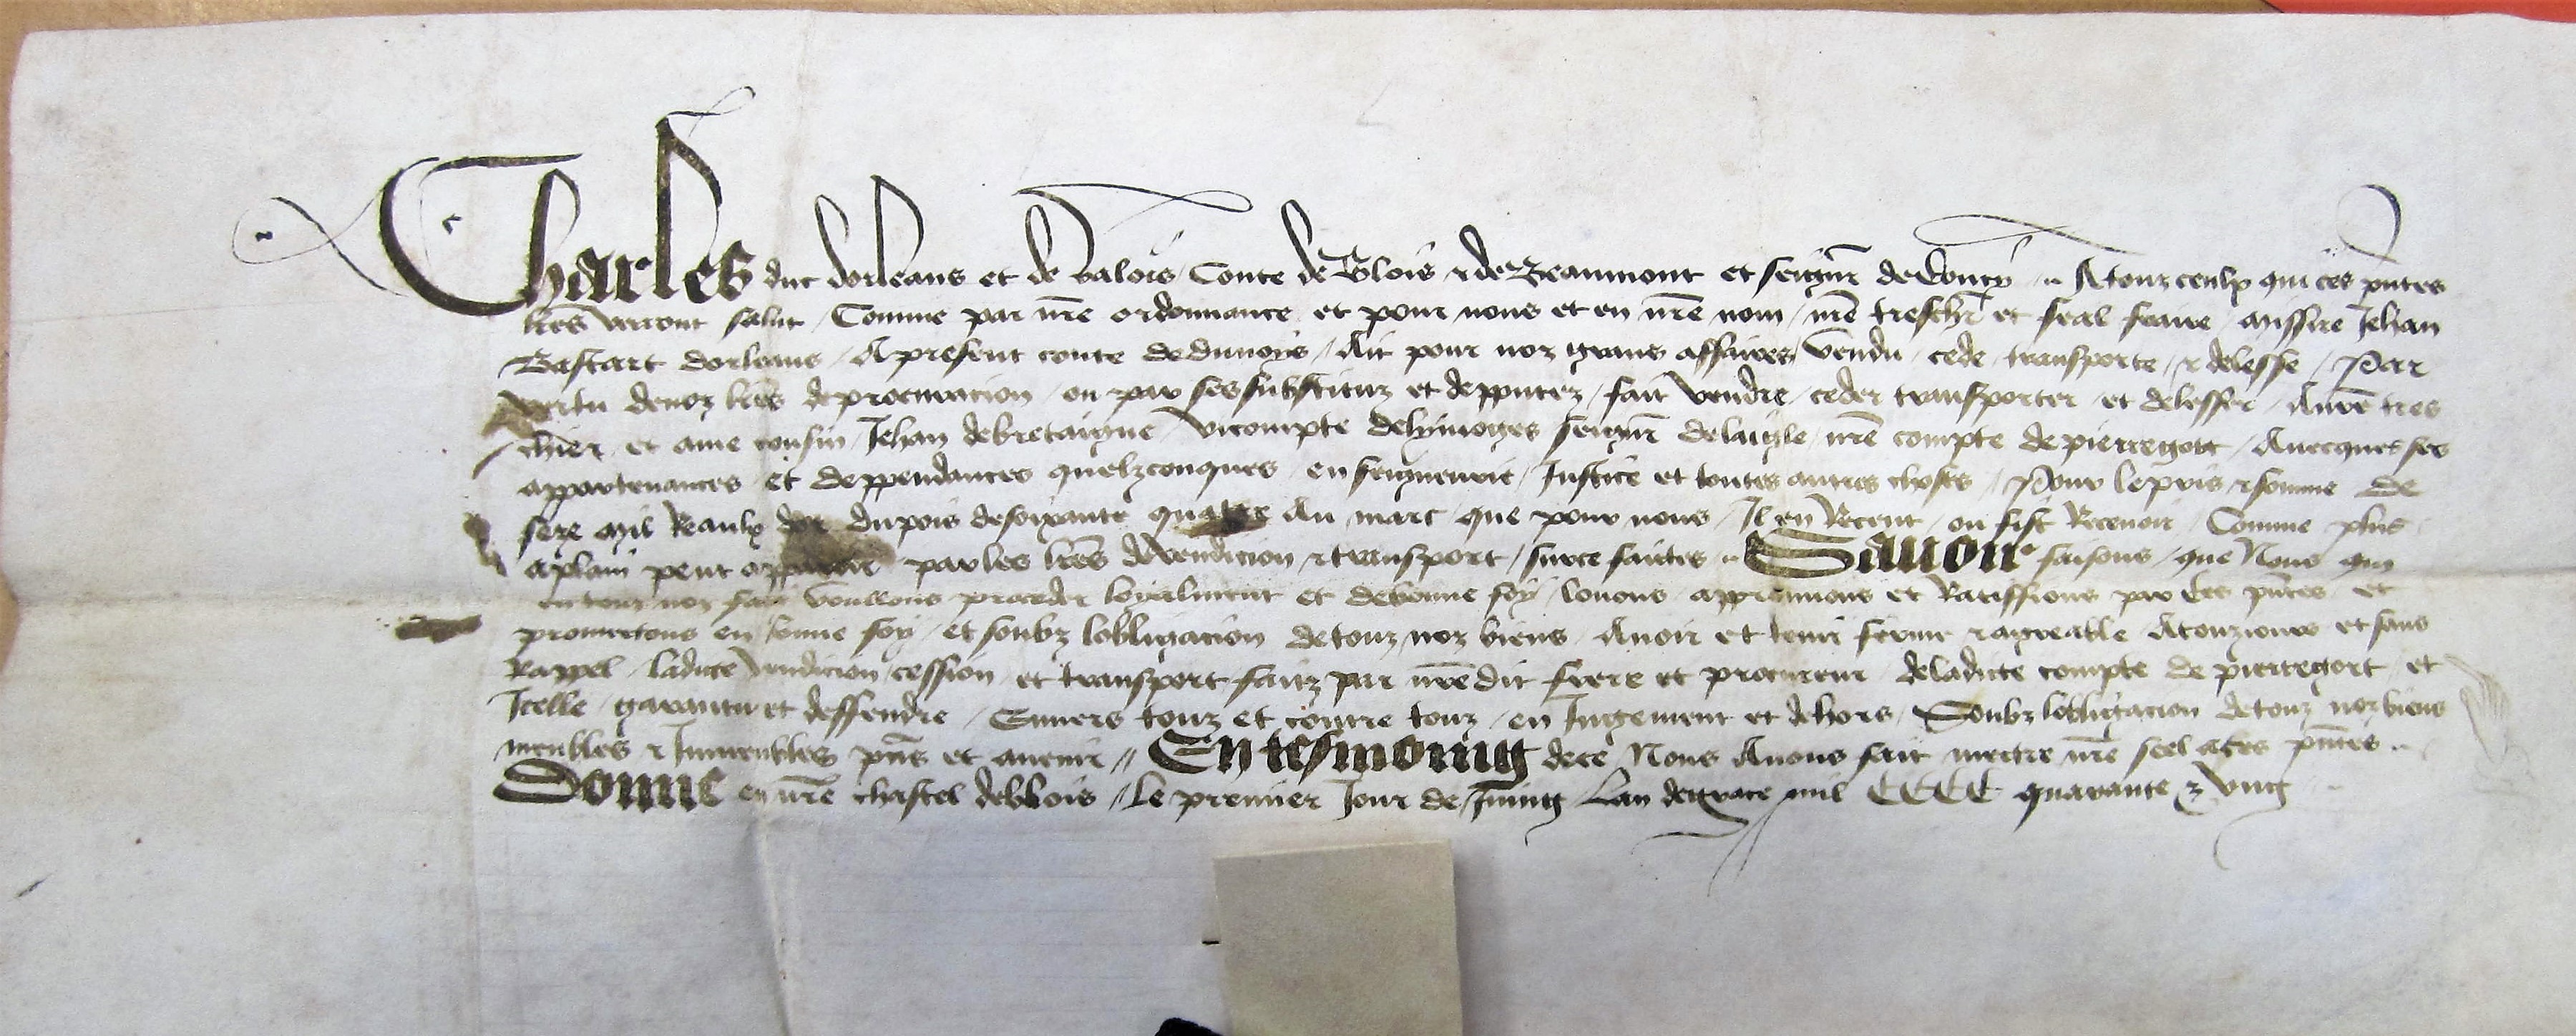 Charles duc dorleans et de valois Conte de Blois & de Beaumont et seignr̃ de Coucy A touz ceulx qui ces pñtes
lrẽs verront salut Comme par nrẽ ordonnance et pour nous et en nrẽ nom nrẽ treschr̃ et feal frere messire Jehan
Bastart dorleans Apresent conte de dunoys Ait pour noz grans affaires vendu cede transporte & delesse Par
vertu de noz lrẽs de procuracion ou par ses substituz et depputez fait vendre ceder transporter et delesser A nrẽ tres
chier et ame cousin Jehan de bretaigne vicompte de lymoges seignr̃ de laigle nrẽ compte de pierregort Auecques ses
appartenances et deppendances quelzconques en seigneurie Justice et toutes autres choses Pour le pris & somme de
seze mil Reaulx dor du pois de soixante quatre Au marc que pour nous Il en Receut ou fist Receuoir Comme plus
aplain peut apparoir par les lrẽs de vendicion & transport surce faictes Sauoir faisons que Nous qui
en touz noz faiz voullons proceder loyalment et de bonne foy louons approuuons et Ratiffions par ces pñtes et
promettons en bonne foy et soubz lobligacion de touz noz biens Auoir et tenir ferme & agreable A touziours et sans
Rappel ladicte vendicion cession et transport faiz par nrẽdit frere et procureur de ladicte compte de pierregort et
Icelle garantir et deffendre Enuers touz et contre touz en Jugement et dehors Soubz lobligacion de touz noz biens
meubles & Immeubles pñs et auenir En tesmoing de ce Nous Auons fait mectre nrẽ seel a ces pñtes
Donne en nrẽ chastel de blois Le premier Jour de Juing Lan de grace mil CCCC quarante & vng